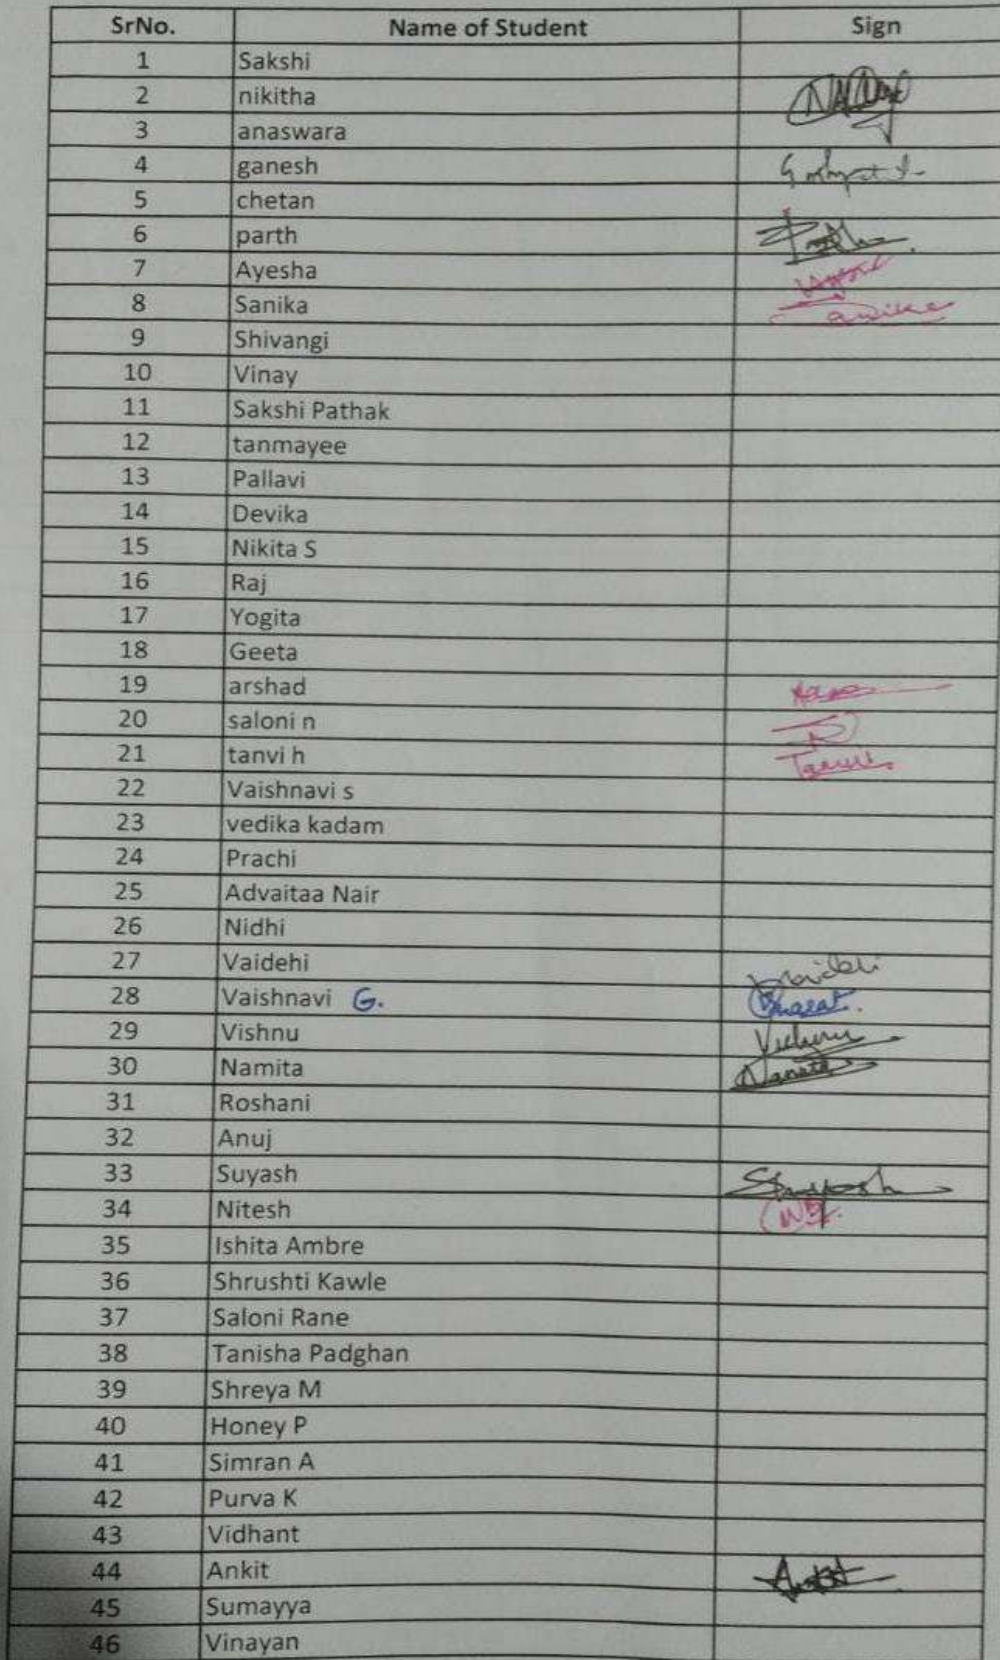 SrNo. Name of Student Sign
1 Sakshi
2 nikitha
3 anaswara
4 ganesh
5 chetan
6 parth
7 Ayesha
8 Sanika
9 Shivangi
10 Vinay
11 Sakshi Pathak
12 tanmayee
13 Pallavi
14 Devika
15 Nikita S
16 Raj
17 Yogita
18 Geeta
19 arshad
20 saloni n
21 tanvi h
22 Vaishnavi s
23 vedika kadam
24 Prachi
25 Advaitaa Nair
26 Nidhi
27 Vaidehi Vaidehi
28 Vaishnavi G.
29 Vishnu Vishnu
30 Namita Namita
31 Roshani
32 Anuj
33 Suyash Suyash
34 Nitesh
35 Ishita Ambre
36 Shrushti Kawle
37 Saloni Rane
38 Tanisha Padghan
39 Shreya M
40 Honey P
41 Simran A
42 Purva K
43 Vidhant
44 Ankit
45 Sumayya
46 Vinayan